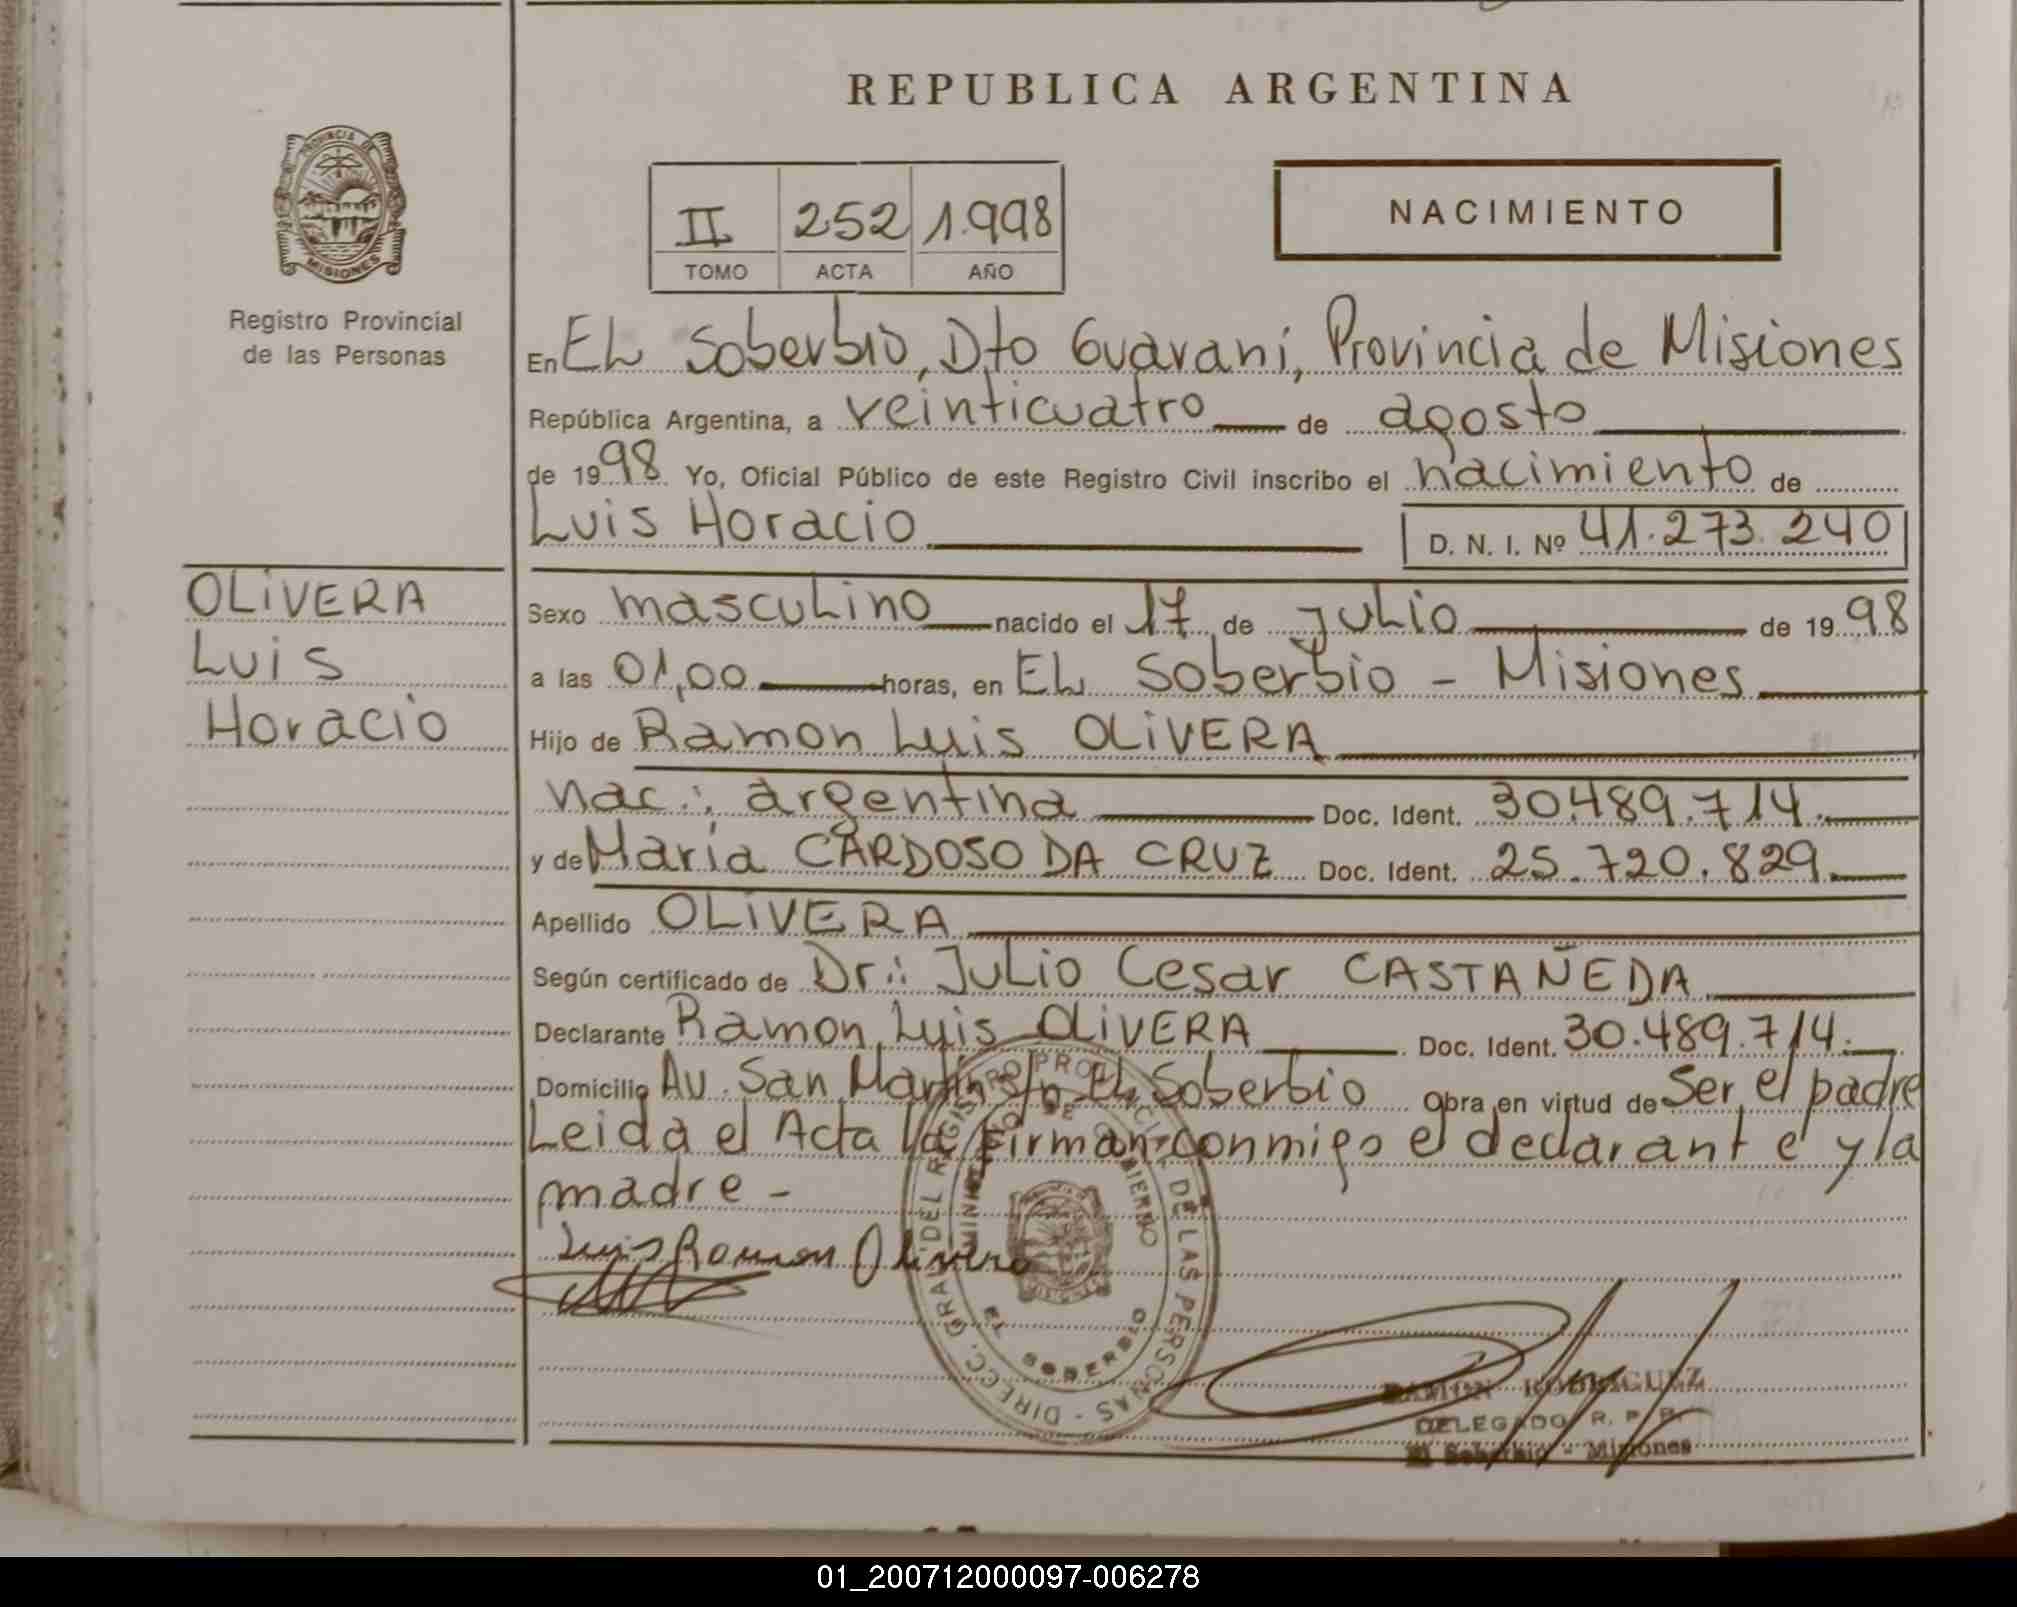 REPUBLICA ARGENTINA
PROVINCIA DE MISIONES
Registro Provincial
de las Personas
II 252 1.998
TOMO ACTA AÑO
NACIMIENTO
En EL Soberbio, Dto Guarani, Provincia de Misiones
República Argentina, a veinticuatro de agosto
de 1998 Yo, Oficial Público de este Registro Civil inscribo el nacimiento de
Luis Horacio D. N. I. Nº 41.273.240
OLIVERA
Luis
Horacio
Sexo masculino nacido el 17 de julio de 1998
a las 01,00 horas, en EL Soberbio - Misiones
Hijo de Ramon Luis OLIVERA
nac.: argentina Doc. Ident. 30.489.714.
y de María CARDOSO DA CRUZ Doc. Ident. 25.720.829.
Apellido OLIVERA
Según certificado de Dr.: Julio Cesar CASTAÑEDA
Declarante Ramon Luis OLIVERA Doc. Ident. 30.489.714.
Domicilio Av. San Martin S/n EL Soberbio Obra en virtud de Ser el padre
Leida el Acta la firman conmigo el declarante y la
madre -
Luis Ramon Olivera
DIRECC. GRAL DEL REGISTRO PROVINCIAL DE LAS PERSONAS -
MINISTERIO DE GOBIERNO
SOBERBIO
MISIONES
RAMON RODRIGUEZ
DELEGADO R. P. P.
El Soberbio - Misiones
01_200712000097-006278